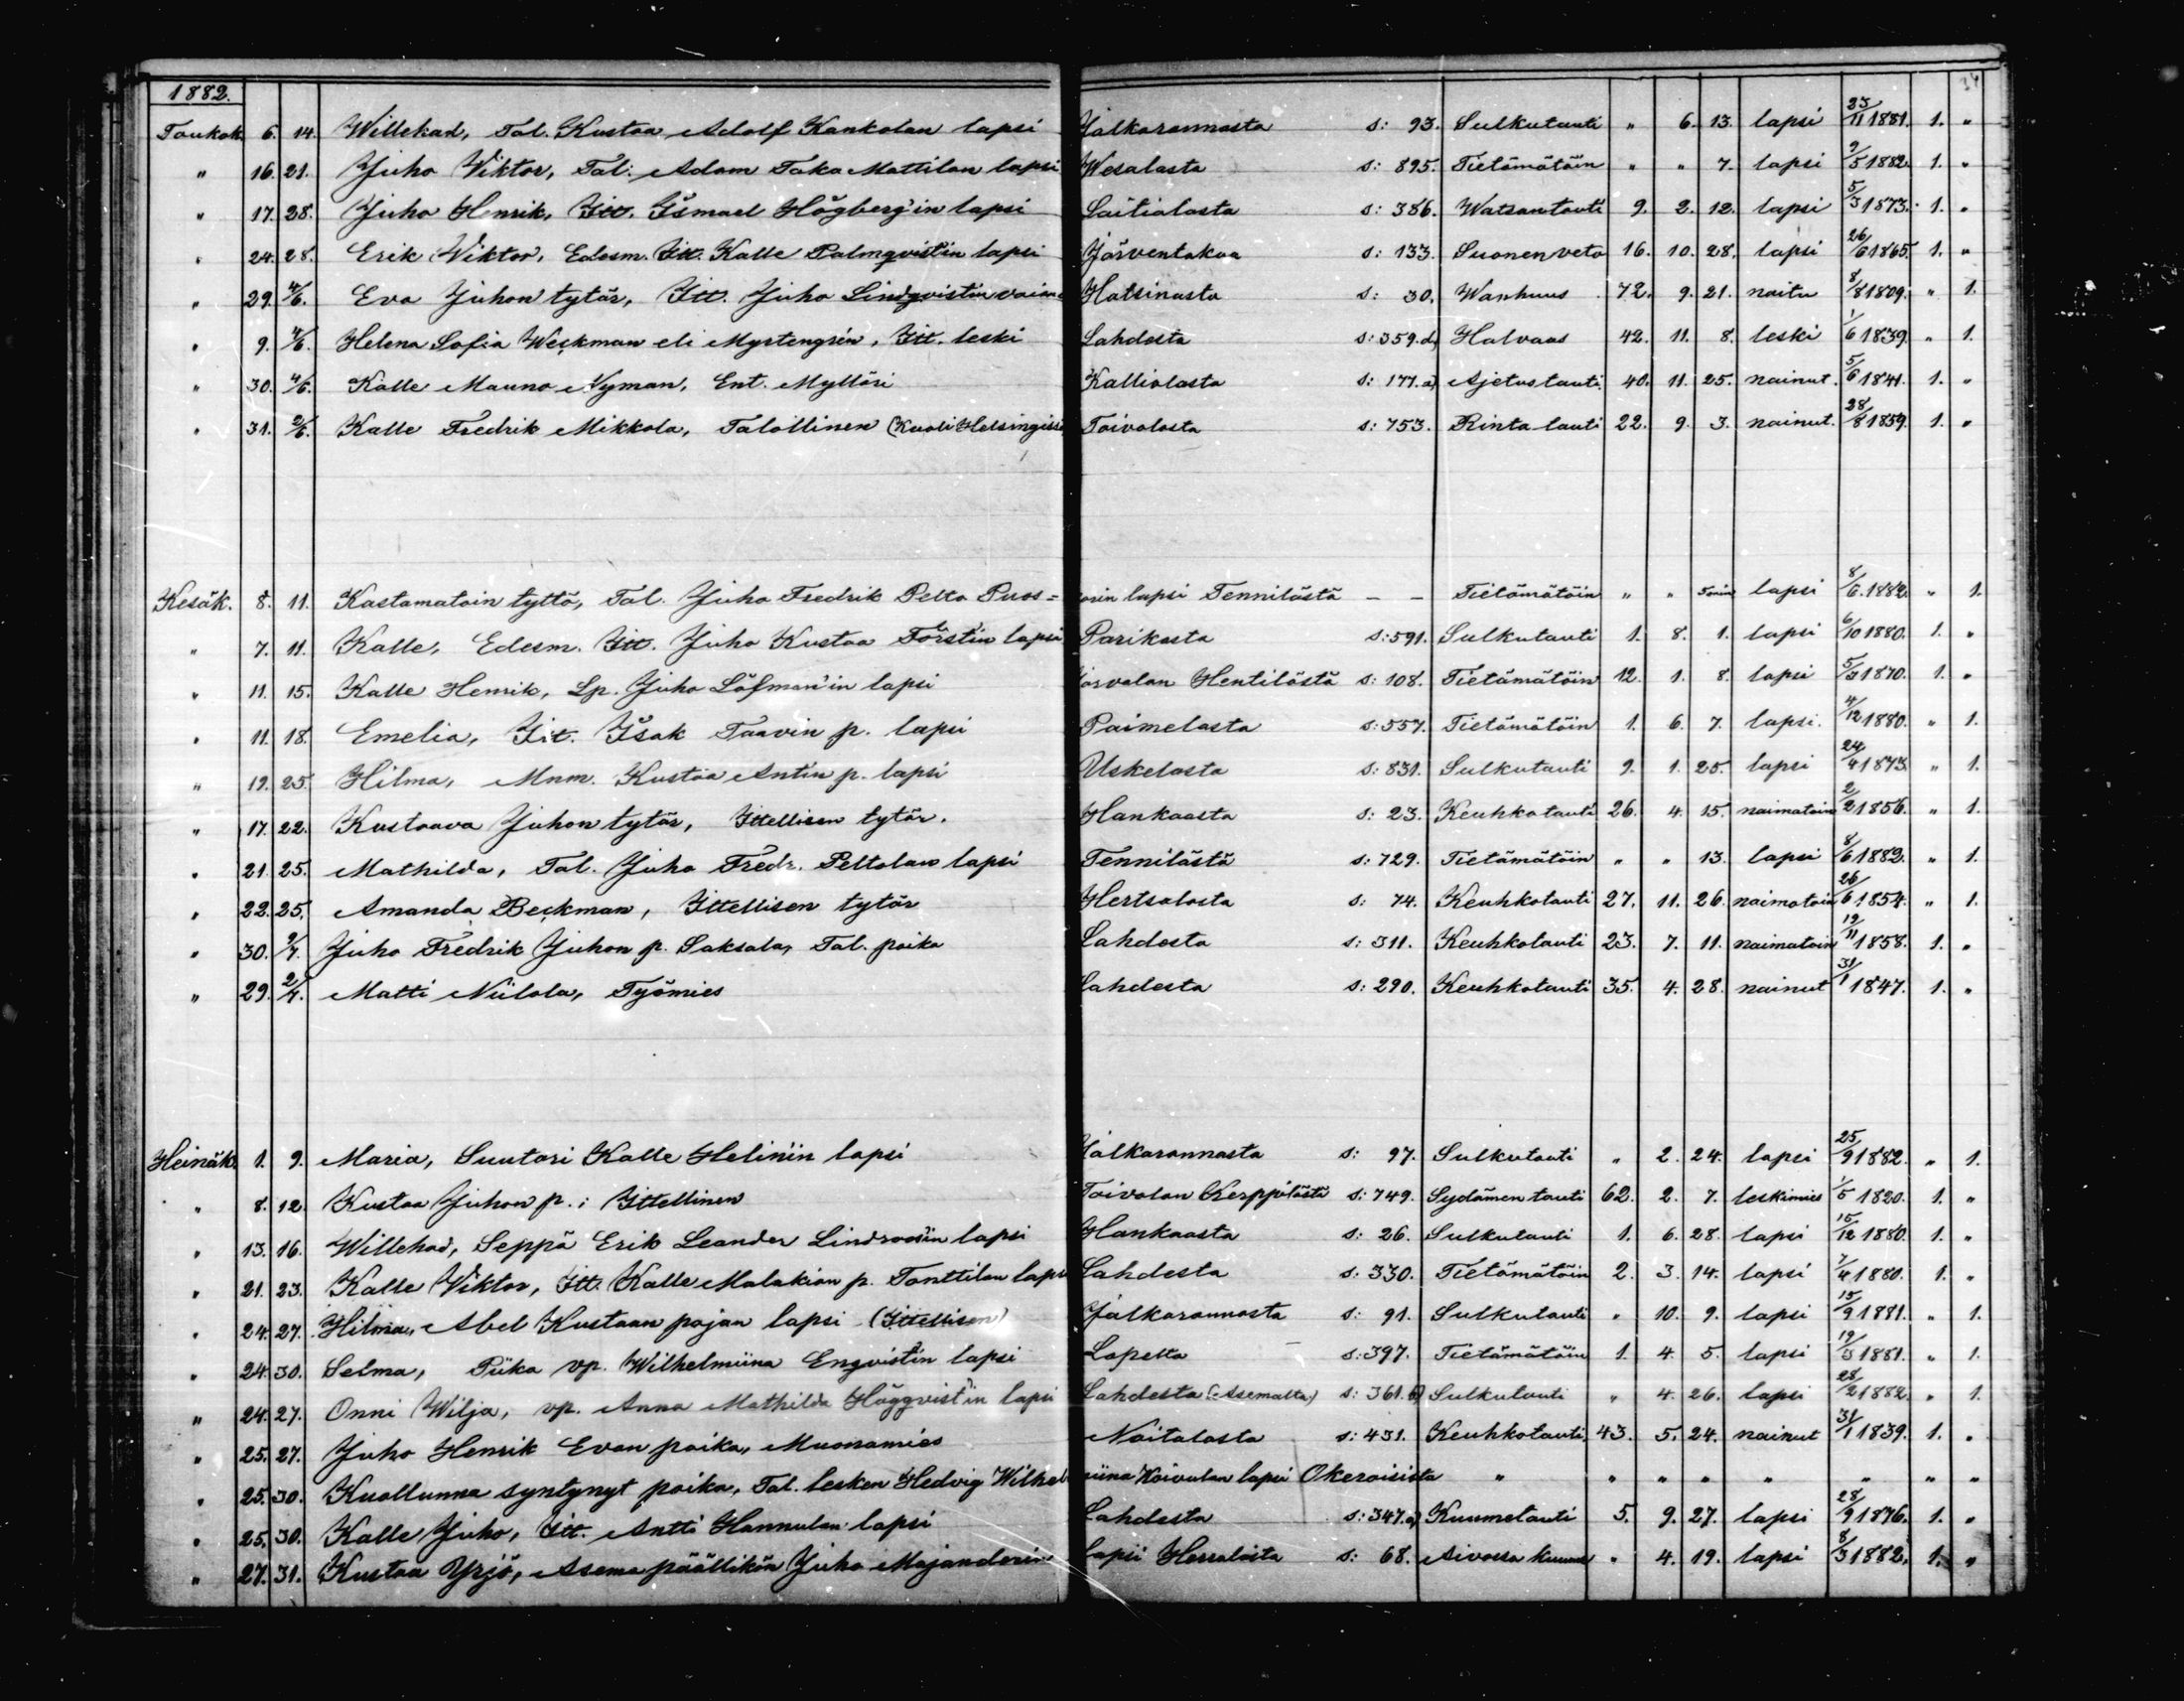 34
1882.
Toukok. 6. 14. Willehad, Tal. Kustaa Adolf Kankolan lapsi Jalkarannasta s: 93. Sulkutauti " 6. 13. lapsi 23/11 1881. 1. "
" 16. 21. Juho Viktor, Tal. Adam Taka Mattilan lapsi Wesalasta s: 895. Tietämätöin " " 7. lapsi 9/5 1882. 1. "
" 17. 28. Juho Henrik, Itt. Ismael Högberg'in lapsi Laitialasta s: 386. Watsantauti 9. 2. 12. lapsi 5/3 1873. 1. "
" 24. 28. Erik Viktor, Edesm. Itt. Kalle Palmqvistin lapsi Järventakaa s: 133. Suonenveto 16. 10. 28. lapsi 26/6 1865. 1. "
" 29. 4/6. Eva Juhon tytär, Itt. Juho Lindqvistin vaimo Hatsinasta s: 30. Wanhuus 72. 9. 21. naitu 8/8 1809. " 1.
" 9. 4/6. Helena Sofia Weckman eli Myrtengren, Itt. leski Lahdesta s: 359.d) Halvaus 42. 11. 8. leski 1/6 1839. " 1.
" 30. 4/6. Kalle Mauno Nyman, Ent. Mylläri Kalliolasta s: 177.a) Ajetustauti 40. 11. 25. nainut. 5/6 1841. 1. "
" 31. 2/6. Kalle Fredrik Mikkola, Talollinen (Kuoli Helsingissä Toivolasta s: 753. Rinta tauti 22. 9. 3. nainut. 28/8 1859. 1. "
Kesäk. 8. 11. Kastamatoin tyttö, Tal. Juho Fredrik Pelto Puos= orin lapsi Tennilästä – – Tietämätöin " " 5 min lapsi 8/6. 1882. " 1.
" 7. 11. Kalle, Edesm. Itt. Juho Kustaa Förstin lapsi Parikasta s: 591. Sulkutauti 1. 8. 1. lapsi 6/10 1880. 1. "
" 11. 15. Kalle Henrik, Lp. Juho Löfman'in lapsi Järvalan Hentilästä s: 108. Tietämätöin 12. 1. 8. lapsi 1870. 1. "
" 11. 18. Emelia, Itt. Isak Taavin p. lapsi Paimelasta s: 557. Tietämätöin 1. 6. 7. lapsi. 4/12 1880. " 1.
" 19. 25. Hilma, Mnm. Kustaa Antin p. lapsi Uskelasta s: 831. Sulkutauti 9. 1. 25. lapsi 24/4 1873 " 1.
" 17. 22. Kustaava Juhon tytär, Ittellisen tytär. Hankaasta s: 23. Keuhkotauti 26. 4. 15. naimatoin 2/2 1856. " 1.
" 21. 25. Mathilda, Tal. Juho Fredr. Peltolan lapsi Tennilästä s: 729. Tietämätöin " " 13. lapsi 8/6 1882. " 1.
" 22. 25. Amanda Beckman, Ittellisen tytär Hertsalasta s: 74. Keuhkotauti 27. 11. 26. naimatoin 26/6 1854. " 1.
" 30. 9/7. Juho Fredrik Juhon p. Saksala, Tal. poika Lahdesta s: 311. Keuhkotauti 23. 7. 11. naimatoin 19/11 1858. 1. "
" 29. 2/7. Matti Niilola, Työmies Lahdesta s: 290. Keuhkotauti 35. 4. 28. nainut 31/1 1847. 1. "
Heinäk. 1. 9. Maria, Suutari Kalle Helin'in lapsi Jalkarannasta s: 97. Sulkutauti " 2. 24. lapsi 25/9 1882. " 1.
" 8. 12. Kustaa Juhon p.; Ittellinen Toivolan Kerppilästä s: 749. Sydämen tauti 62. 2. 7. leskimies 1/5 1820. 1. "
" 13. 16. Willehad, Seppä Erik Leander Lindroos'in lapsi Hankaasta s: 26. Sulkutauti 1. 6. 28. lapsi 15/12 1880. 1. "
" 21. 23. Kalle Viktor, Itt. Kalle Malakian p. Tonttilan lapsi Lahdesta s: 330. Tietämätöin 2. 3. 14. lapsi 7/4 1880. 1. "
" 24. 27. Hilma, Abel Kustaan pojan lapsi (Ittellisen) Jalkarannasta s: 91. Sulkutauti " 10. 9. lapsi 15/9 1881. " 1.
" 24. 30. Selma, Piika vp. Wilhelmiina Engvist'in lapsi Lopelta s: 397. Tietämätöin 1. 4. 5. lapsi 19/3 1881. " 1.
" 24. 27. Onni Wilja, vp. Anna Mathilda Häggvist'in lapsi Lahdesta (Asemalta) s: 361.b) Sulkutauti " 4. 26. lapsi 28/2 1882. " 1.
" 25. 27. Juho Henrik Evan poika, Muonamies Noitalasta s: 431. Keuhkotauti. 43. 5. 24. nainut 31/1 1839. 1. "
" 25. 30. Kuollunna syntynyt poika, Tal. lesken Hedvig Wilhel miina Koivulan lapsi Okeroisista " " " " " " " "
" 25. 30. Kalle Juho, Itt. Antti Hannulan lapsi Lahdesta s: 347.a) Kuumetauti 5. 9. 27. lapsi 28/9 1876. 1. "
" 27. 31. Kustaa Yrjö, Asema päällikön Juho Majanderin lapsi Herralasta s: 68. Aivossa kuume " 4. 19. lapsi 8/3 1882. 1. "